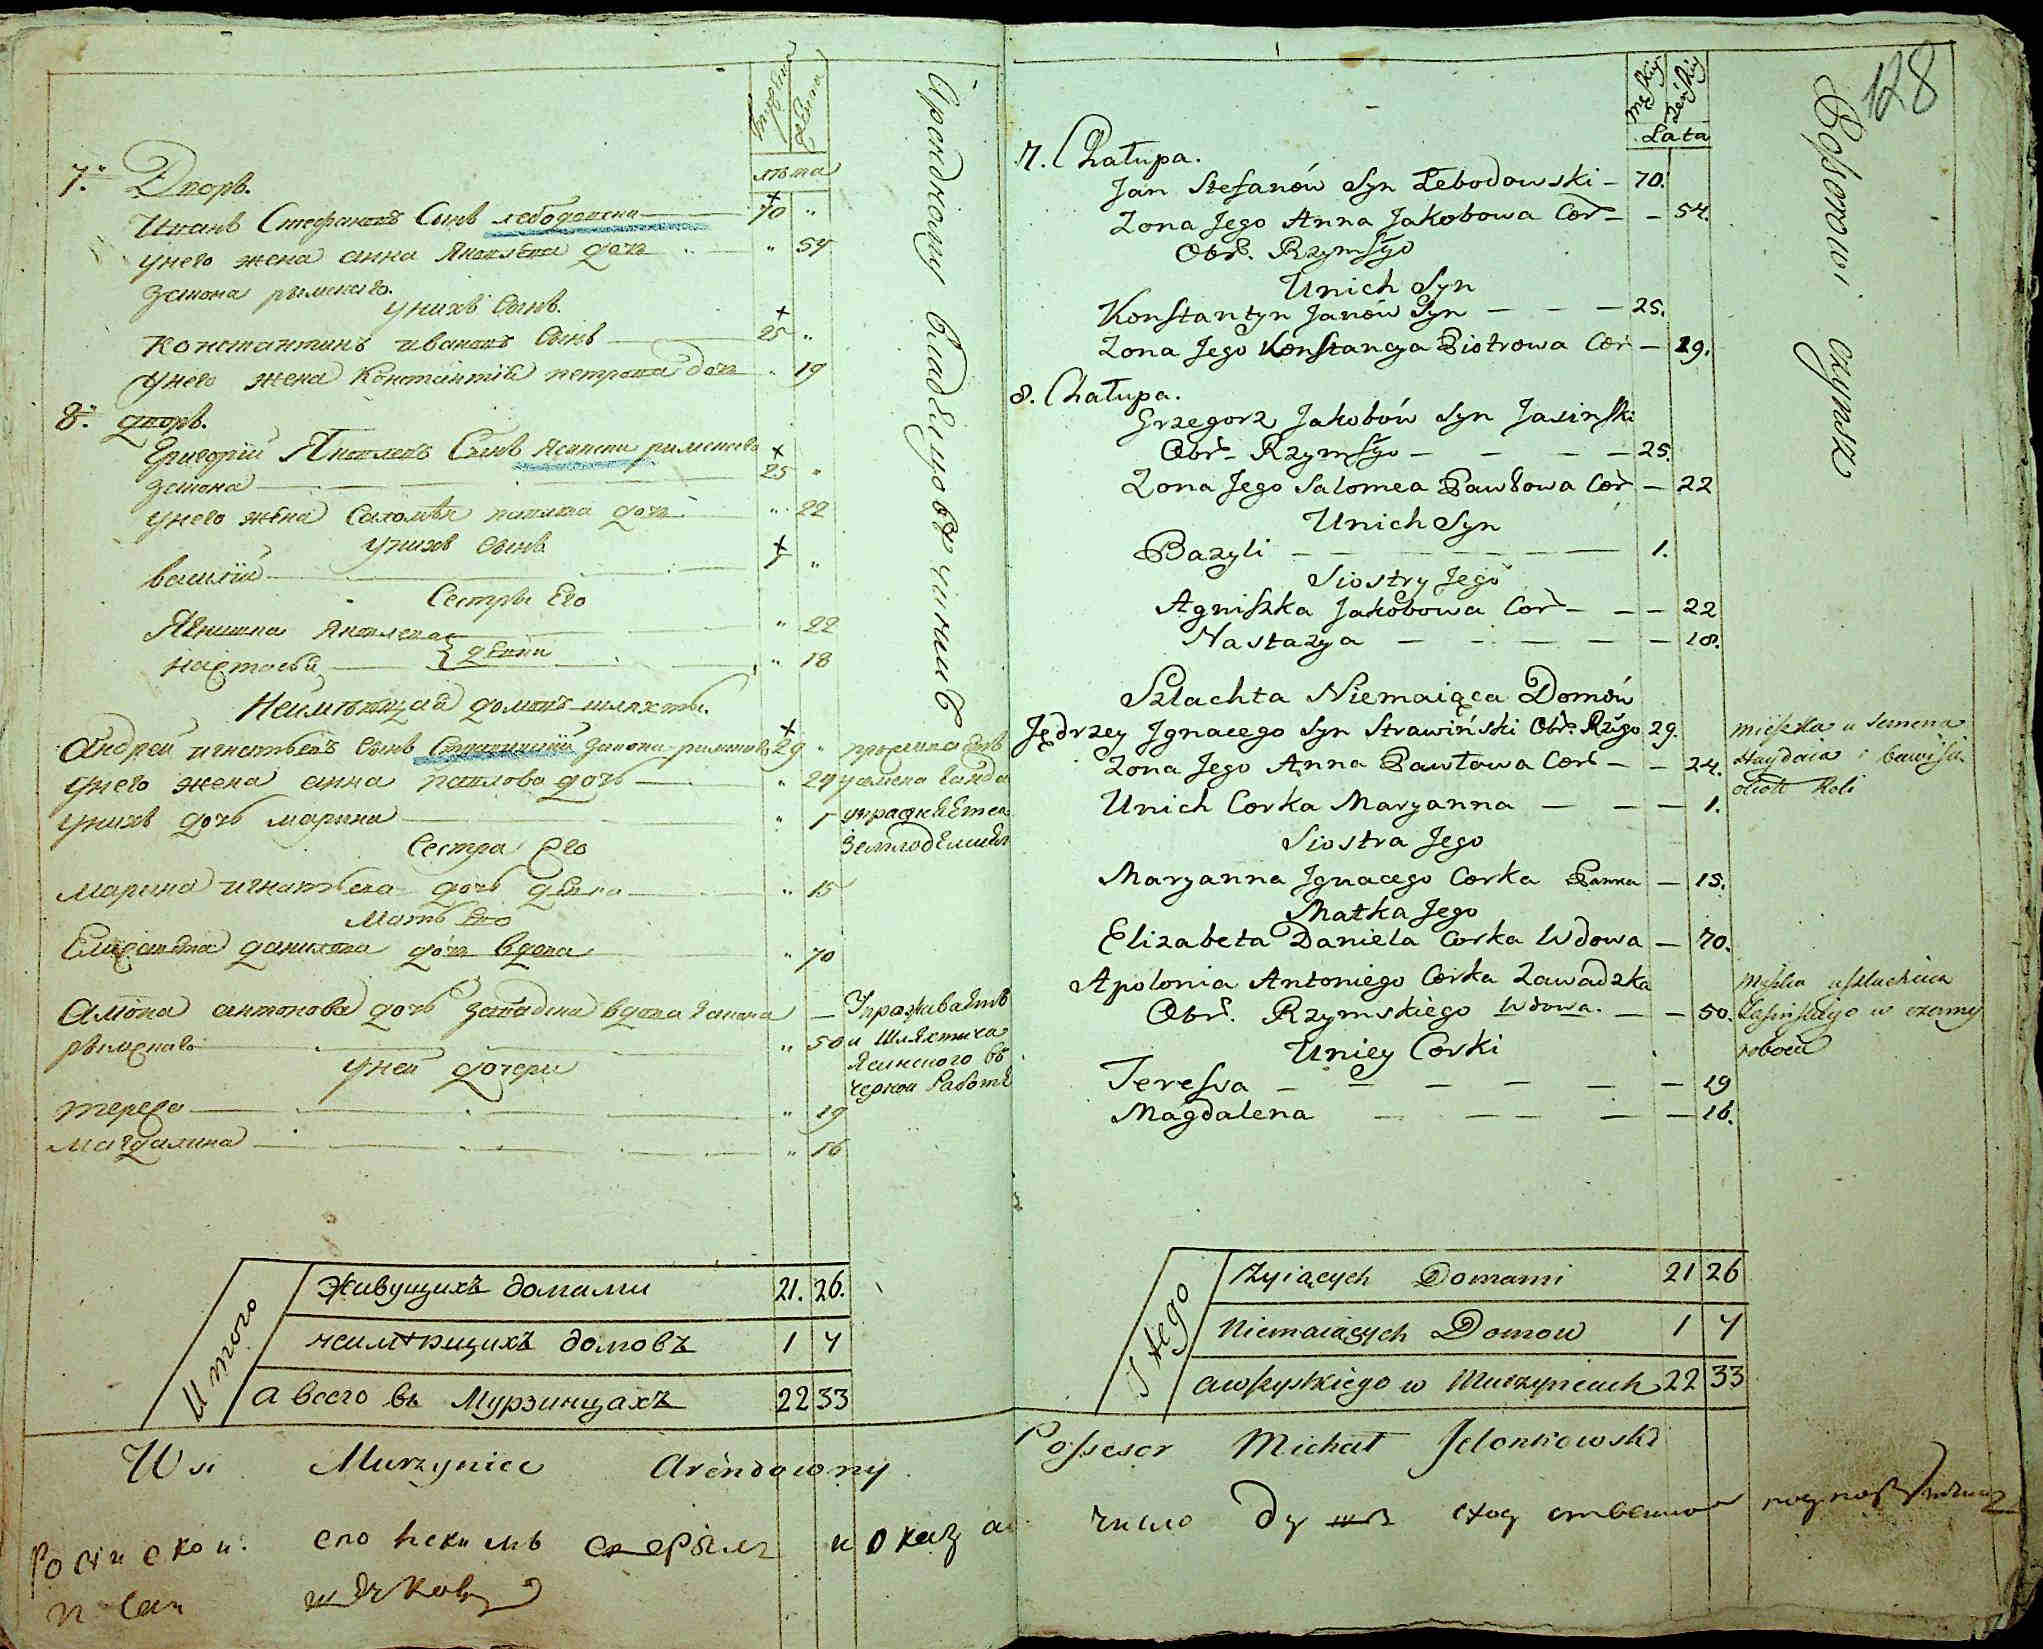 мужеска
женска
лѣта
7. Дворъ.
Иванъ Стефановъ Сынъ лебодовски 70 "
унего жена анна Яковлева дочь " 54
закона рымскаго.
унихъ Сынъ.
Константинъ ивановъ Сынъ 25 "
унего жена Константіа петрова дочь " 19
8. дворъ.
Григорий Яковлевъ Сынъ Ясински римскаго
закона 25 "
унего жена Саломѣя павлова дочь " 22
унихъ Сынъ
василій 1 "
Сестры Его
Ягнишка Яковлева " 22
настасья } дѣвки " 18
Неимѣющая домовъ шляхты.
Андрей игнатьевъ Сынъ Стравинский закона римскаго 29 "
унего жена анна павлова дочь " 24
унихъ дочь марина " 1
Сестра Его
Марина игнатьева дочь дѣвка " 15
Мать Его
Елисавета данилова дочь вдова " 70
антонова дочь завадска вдова закона
рымскаго " 50
уней дочери
тереса " 19
магдалина " 16
земледелием
и шляхтича
Ясинского въ
черной работѣ
Итого
Живущихъ домами 21. 26.
неимѣющихъ домовъ 1 7
а всего въ Мурзинцахъ 22 33
Wsi Murzyniec Arendowny
128
Męskiey
Żeńskiey
Lata
7. Chałupa.
Jan Stefanów Syn Lebodowski – 70.
Zona Jego Anna Jakobowa Cor – – 54.
Obr. Rzymsgo
Unich Syn
Konstantyn Janów Syn – – – 25.
Zona Jego Konstancya Piotrowa Cor – 19.
8. Chałupa.
Grzegorz Jakobów Syn Jasinski
Obr. Rzymsgo – – – – 25.
Zona Jego Salomea Pawłowa Cor – 22
Unich Syn
Bazyli – – – – – – 1.
Siostry Jego
Agniszka Jakobowa Cor – – – 22
Nastazya – – – – – – 18.
Szlachta Niemaiąca Domów
Jędrzey Jgnacego Syn Strawiński Obr. Rzsgo 29.
Zona Jego Anna Pawłowa Cor – – 24.
Unich Corka Maryanna – – – 1.
Siostra Jego
Maryanna Jgnacego Corka Panna – 15.
Matka Jego
Elizabeta Daniela Corka Wdowa – 70.
Apolonia Antoniego Corka Zawadzka
Obr. Rzymskiego Wdowa. – – 50.
Uniey Corki
Teressa – – – – – – 19
Magdalena – – – – – 16.
mieszka u Semena
Hayduca i bawi się
około Roli
mieszka u szlachcica
Jasinskiego w czarney
robocie
Possessorowi czynsz
Itego
żyiących Domami 21 26
Niemaiących Domow 1 7
awszystkiego w Murzyncach 22 33
Possesor Michał Jelonkowski
число душъ